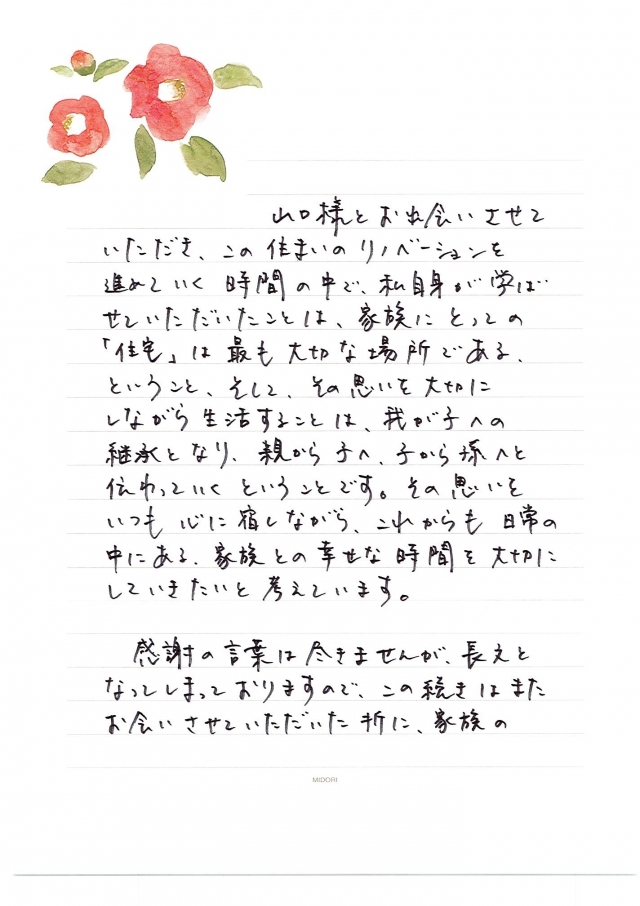 山口様とお出会いさせて
いただき、この住まいのリノベーションを
進めていく時間の中で、私自身が学ば
せていただいたことは、家族にとっての
「住宅」は最も大切な場所である、
ということ、そして、その思いを大切に
しながら生活することは、我が子への
継承となり、親から子へ、子から孫へと
伝わっていくということです。その思いを
いつも心に宿しながら、これからも日常の
中にある、家族との幸せな時間を大切に
していきたいと考えています。
感謝の言葉は尽きませんが、長文と
なってしまっておりますので、この続きはまた
お会いさせていただいた折に、家族の
MIDORI